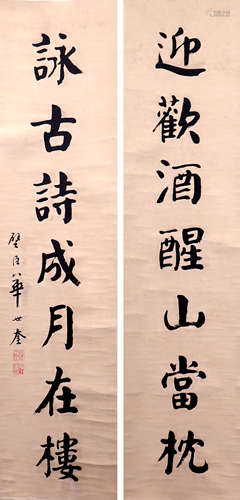 迎歡酒醒山當枕
詠古詩成月在樓
璧臣華世奎